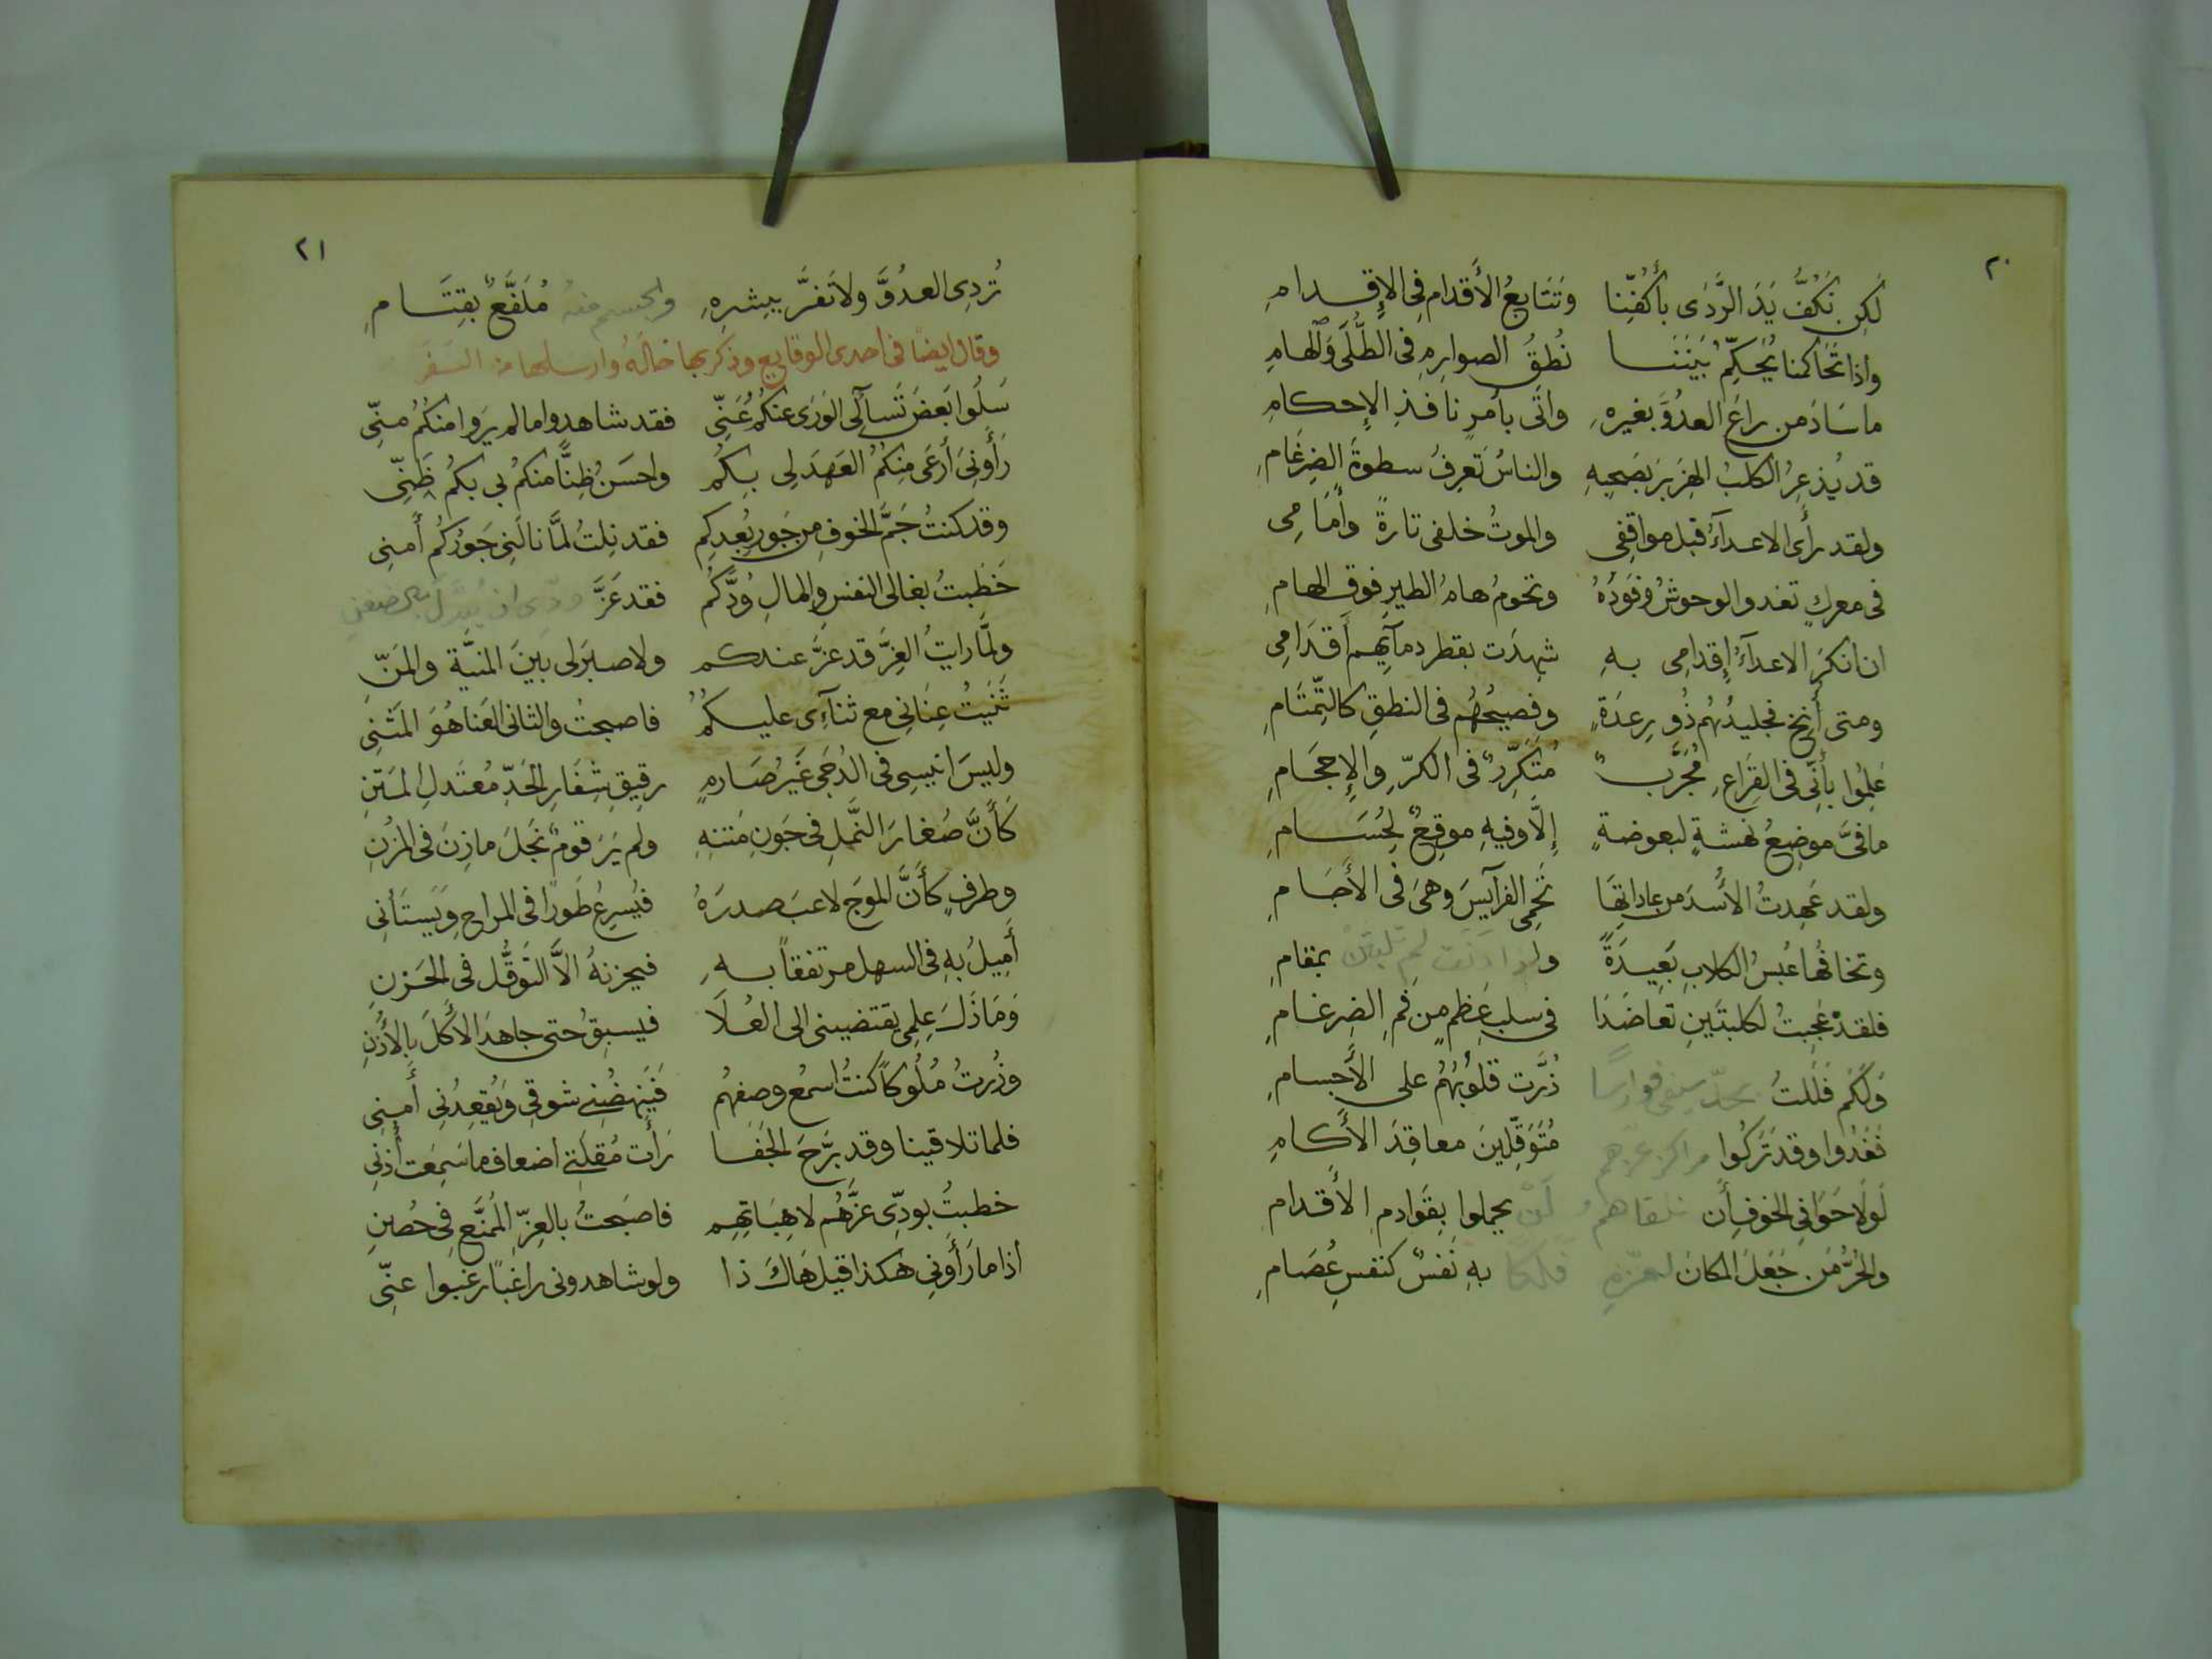 ٢٠
لَكِن نَكُفُّ يَدَ الرَّدَى بأكُفِّنا وَتَتَابعُ الأَقدام فِى الإِقدامِ
واذا تَحَاكمنا يُحَكِّمُ بَيَننَا نُطقُ الصوارِمِ فى الطُّلَى وَالهامِ
ما سَادَ من راعَ العدُوَّ بغيرهِ واتَى بأمرٍ نافذِ الإحكامِ
قد يُذعِرُ الكلبُ الهِزَبرَ بصَيحِهِ والناسُ تَعرِفُ سطوةَ الضِرغَامِ
ولقد رأى الاعدآءُ قبل مواقِفِى والموتُ خلفى تارةً وأمَامِى
فى معركٍ تغدو الوحوشُ وُفَودُهُ وتحومُ هامُ الطيرِ فوق الهامِ
ان انكرَ الاعدآءُ إقدامِى بهِ شهِدَت بقطرِ دمآيِهِم أقدَامِى
ومتى أُنِخ فجليدُهُم ذُو رِعدَةٍ وفصِيحُهُم فى النطقِ كالتِّمتَامِ
عَلِمُوا بأَنِّى فى القِرَاعِ مُجَرَّبٌ مُتَكَرِّرٌ فى الكرّ والإِحجَامِ
ما فىَّ موضِعُ نهشةٍ لبعوضةٍ إلَّا وفيهِ موقِعٌ لِحُسَامِ
ولقد عَهِدتُ الأُسدَ من عاداتِهَا تَحمِى الفرآيسَ وهىَ فى الأَجَامِ
وتخافُها عُبسُ الكلابِ بَعِيدَةً ولو ادّنَت لم تلبثن بمقامِ
فلقد عَجِبتُ لكلبتَينِ تعاضَدَا فى سلبِ عَظمٍ من فمِ الضِرغامِ
وَلَكَم فَلَلتُ بحدّ سيفى فوارسًا ذُرَّت قلوبُهُمُ على الأجسامِ
فَغَدُوا وقد تَرَكُوا مراكز عزّهم مُتَوَقِّلِينَ معاقِدَ الأَكامِ
لَولَا خَوَافِى الخوفِ أن نلقاهم لَن يحملوا بِقَوادمِ الأقدامِ
والحُرُّ مَن جَعَلَ المكانَ لعزّهِ فلكًا بهِ نَفسٌ كنفسِ عُصَامِ
٢١
تُردِى العدُوَّ ولا تَغرَّ ببِشرِهِ والجسم منهُ مُلَفَّعٌ بقِتَامِ
وقال ايضًا فى احدى الوقايع وذكر بها خالَهُ وارسلها من السَفَر
سَلُوا بَعضَ تَسآلِى الوَرَى عنكُمُ عَنِّى فقد شاهدوا ما لم يرَوا منكُمُ منّى
رَأَونِىَ أرعَى مِنكُمُ العَهدَ لى بِكُم واحسَنُ ظِنًّا منكمُ بى بكمُ ظَنِّى
وقد كنتُ جَمَّ الخوفِ من جَورِ بُعدِكم فقد نِلتُ لمَّا نالَنِى جَورُكُم أمنِى
خَطَبتُ بغالى النفس والمالِ وُدَّكُم فقد عَزَّ
ولمَّا رايتُ العِزَّ قد عَزَّ عندكم ولا صبرَ لى بينَ المنيَّة والمَنّ
ثَنَيتُ عِنَانِى مع ثنآءِى عليكُمُ فاصبحتُ والثانى العَنا هُوَ المَثنِى
وليسَ انيسِى فى الدُجَى غيرُ صَارمٍ رقيقِ شِفَارِ الحَدِّ مُعتَدلِ المتنِ
كَأَنَّ صُغارَ النَّملِ فى جَونِ مَتنهِ ولم يَرَ قومٌ نَجلَ مازِنَ فى المُزنِ
وطرفٍ كأَنَّ الموَجَ لاعبَ صدرَهُ فيُسرِعُ طَورًا فى المراحِ وَيَستَأنِى
أَمِيلُ بهِ فى السهلِ مرتفقًا بهِ فيحزنهُ الاَّ التَّوَقُّل فى الحَزنِ
وَمَا ذَلَ عِلمِى يقتضينى الى العُلَا فيسبقُ حتى جاهدَ الأكلَ بالأُذُنِ
وزُرتُ مُلُوكًا كنتُ اسمعُ وصفهُم فَيُنهضُنِى شوقى وَيُقعِدُنِى أَمنِى
فلما تلاقينا وقد بَرَّحَ الجَفَا رَأَت مُقلَتِى اضعاف ما سَمِعَت أُذنِى
خطبتُ بودّى عزَّهُم لا هِبَاتِهِم فاصبَحتُ بالعِزّ المُمَنَّع فى حُصنِ
اذا ما رَأَونِى هكذا قيلَ هَاكَ ذا ولو شاهدونى راغبًا رغبوا عنّى